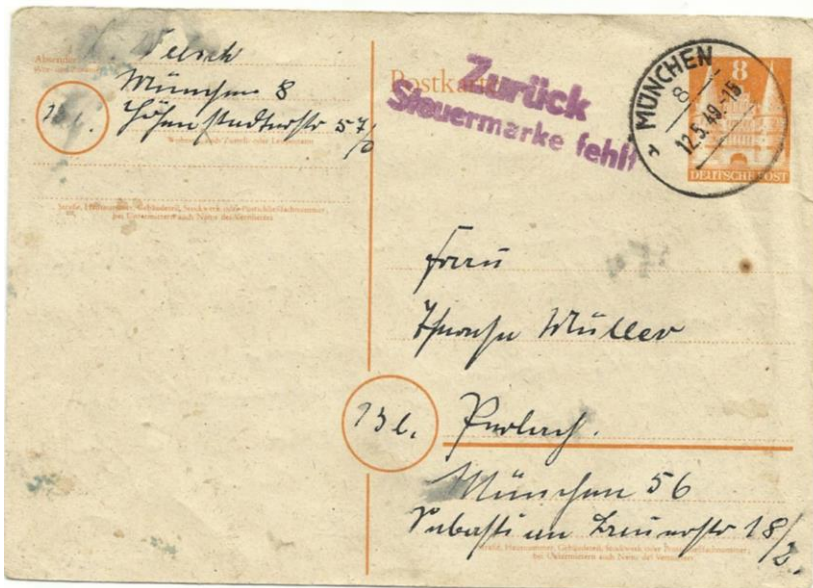 Absender
München 8
13b.
57/0
Straße, Hausnummer, Gebäudeteil, Stockwerk oder Postschließfachnummer;
bei Untermietern auch Name des Vermieters
Postkarte
Zurück
Steuermarke fehlt
MÜNCHEN
8
12.5.49.-16
8
DEUTSCHE POST
Frau
Müller
13b.
Perlach.
München 56
Sebastian Bauerstr 18/2.
Straße, Hausnummer, Gebäudeteil, Stockwerk oder Postschließfachnummer;
bei Untermietern auch Name des Vermieters